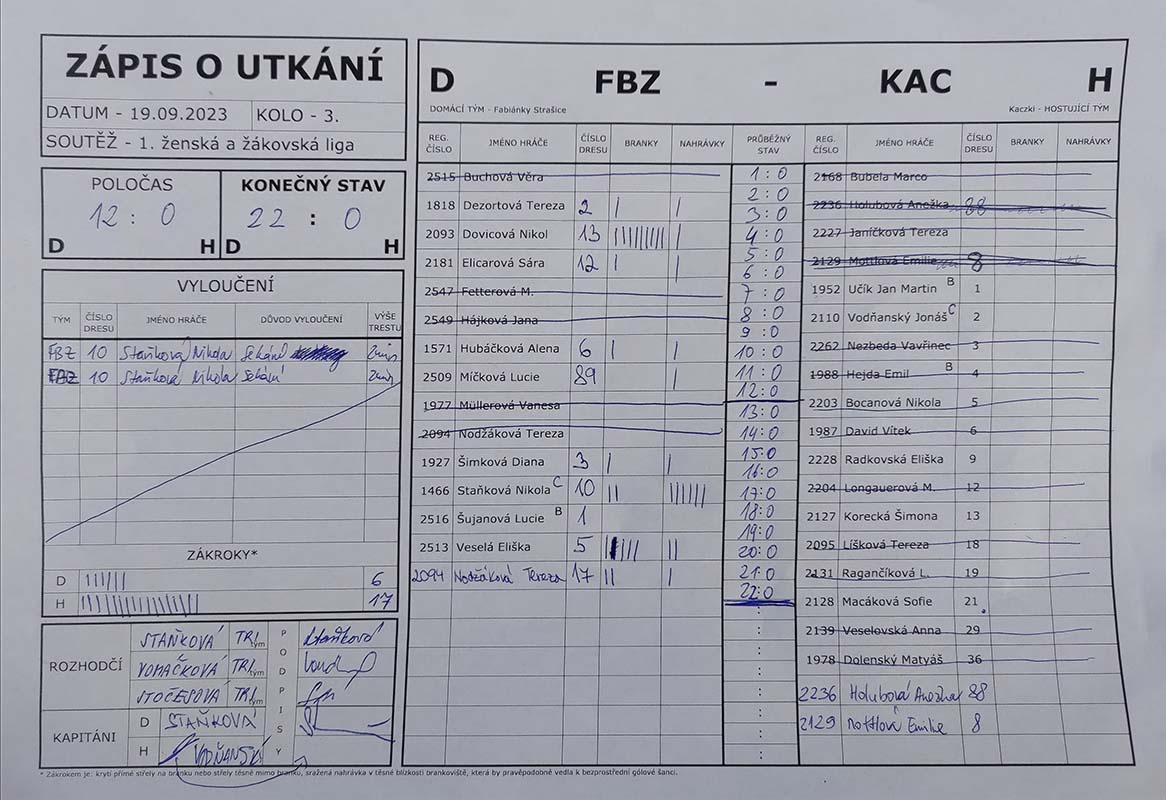 ZÁPIS O UTKÁNÍ
DATUM - 19.09.2023 KOLO - 3.
SOUTĚŽ - 1. ženská a žákovská liga
POLOČAS
12 : 0
D H
KONEČNÝ STAV
22 : 0
D H
VYLOUČENÍ
TÝM ČÍSLO DRESU JMÉNO HRÁČE DŮVOD VYLOUČENÍ VÝŠE TRESTU
FBZ 10 Staňková Nikola Sekání 2min
FBZ 10 Staňková Nikola Sekání 2min
ZÁKROKY*
D 6
H 17
ROZHODČÍ
STAŇKOVÁ TRI tým
VOMÁČKOVÁ TRI tým
STOČESOVÁ TRI tým
PODPISY
Staňková
KAPITÁNI
D STAŇKOVÁ
H VODŇANSKÝ
D FBZ - KAC H
DOMÁCÍ TÝM - Fabiánky Strašice Kaczki - HOSTUJÍCÍ TÝM
REG. ČÍSLO JMÉNO HRÁČE ČÍSLO DRESU BRANKY NAHRÁVKY
2515 Buchová Věra
1818 Dezortová Tereza 2 | |
2093 Dovicová Nikol 13 ||||||||| |
2181 Elicarová Sára 12 | |
2547 Fetterová M.
2549 Hájková Jana
1571 Hubáčková Alena 6 | |
2509 Míčková Lucie 89 |
1977 Müllerová Vanesa
2094 Nodžáková Tereza
1927 Šimková Diana 3 | |
1466 Staňková Nikola C 10 || ||||||
2516 Šujanová Lucie B 1
2513 Veselá Eliška 5 ||
2094 Nodžáková Tereza 17 || |
PRŮBĚŽNÝ STAV
1 : 0
2 : 0
3 : 0
4 : 0
5 : 0
6 : 0
7 : 0
8 : 0
9 : 0
10 : 0
11 : 0
12 : 0
13 : 0
14 : 0
15 : 0
16 : 0
17 : 0
18 : 0
19 : 0
20 : 0
21 : 0
22 : 0
:
:
:
:
:
:
REG. ČÍSLO JMÉNO HRÁČE ČÍSLO DRESU BRANKY NAHRÁVKY
2168 Bubela Marco
2236 Holubová Anežka 88
2227 Janíčková Tereza
2129 Mottlová Emilie 8
1952 Učík Jan Martin B 1
2110 Vodňanský Jonáš C 2
2262 Nezbeda Vavřinec 3
1988 Hejda Emil B 4
2203 Bocanová Nikola 5
1987 David Vítek 6
2228 Radkovská Eliška 9
2204 Longauerová M. 12
2127 Korecká Šimona 13
2095 Líšková Tereza 18
2131 Ragančíková L. 19
2128 Macáková Sofie 21
2139 Veselovská Anna 29
1978 Dolenský Matyáš 36
2236 Holubová Anežka 88
2129 Mottlová Emilie 8
* Zákrokem je: krytí přímé střely na branku nebo střely těsně mimo branku, sražená nahrávka v těsné blízkosti brankoviště, která by pravěpodobně vedla k bezprostřední gólové šanci.